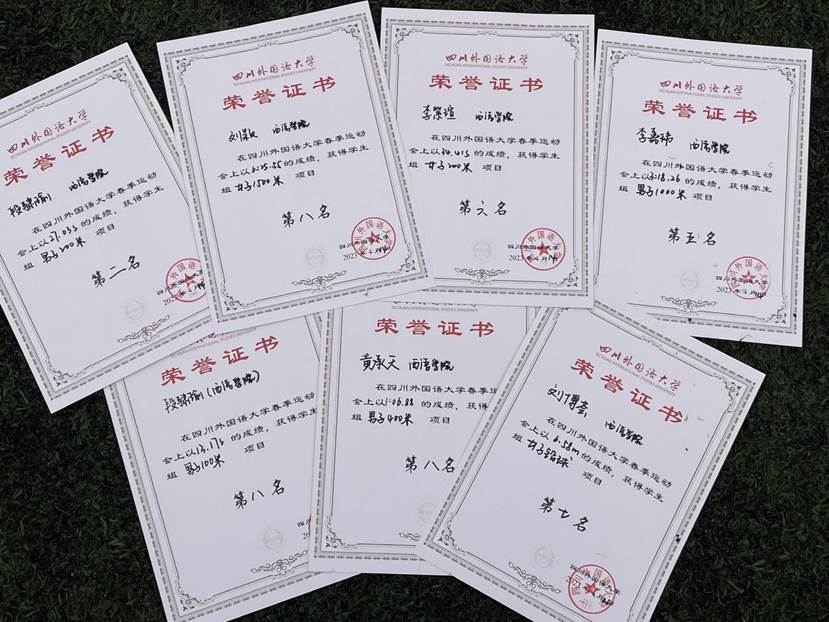 四川外国语大学
SICHUAN INTERNATIONAL STUDIES UNIVERSITY
荣誉证书
西语学院
在四川外国语大学春季运动
会上以27.03s的成绩，获得学生
组 男子200米 项目
第二名
四川外国语大学
四川外国语大学
SICHUAN INTERNATIONAL STUDIES UNIVERSITY
荣誉证书
西语学院
在四川外国语大学春季运动
会上以6:25.55的成绩，获得学生
组 女子1500米 项目
第八名
四川外国语大学
2023年4月
四川外国语大学
SICHUAN INTERNATIONAL STUDIES UNIVERSITY
荣誉证书
西语学院
在四川外国语大学春季运动
会上以34.41s的成绩，获得学生
组 女子200米 项目
第六名
四川外国语大学
2023年4月
四川外国语大学
SICHUAN INTERNATIONAL STUDIES UNIVERSITY
荣誉证书
李嘉玮 西语学院
在四川外国语大学春季运动
会上以3:18.26的成绩，获得学生
组 男子1000米 项目
第五名
四川外国语大学
2023年4月
SICHUAN INTERNATIONAL STUDIES UNIVERSITY
荣誉证书
(西语学院)
在四川外国语大学春季运动
会上以13.17s的成绩，获得学生
组 男子100米 项目
第八名
荣誉证书
黄承天 西语学院
在四川外国语大学春季运动
会上以1:06.88的成绩，获得学生
组 男子400米 项目
第八名
四川外国语大学
SICHUAN INTERNATIONAL STUDIES UNIVERSITY
荣誉证书
西语学院
在四川外国语大学春季运动
会上以6.58m的成绩，获得学生
组 女子铅球 项目
第七名
四川外国语大学